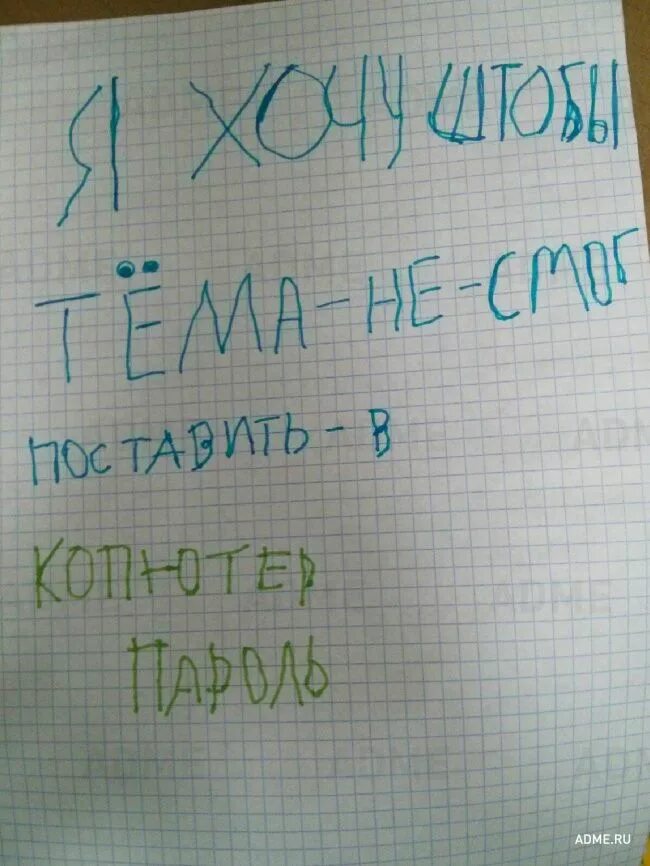 Я ХОЧУ ШТОБЫ
ТЁМА-НЕ-СМОГ
ПОСТАВИТЬ-В
КОПЮТЕР
ПАРОЛЬ
ADME
ADME
ADME.RU